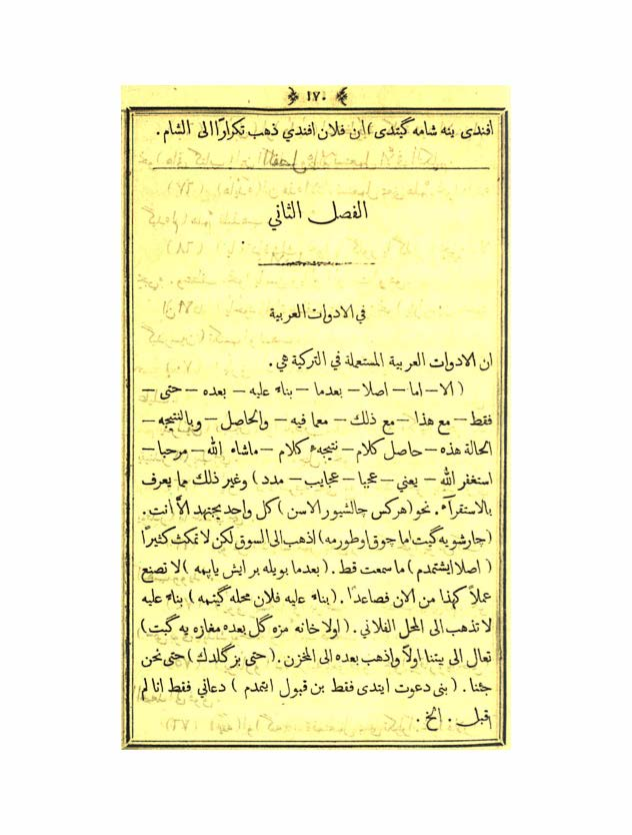 ١٧٠
افندى ينه شامه گيتدى) ان فلان افندي ذهب تكرارًا الى الشام.
الفصل الثاني
في الادوات العربية
ان الادوات العربية المستعملة في التركية هي.
(الا — اما — اصلا — بعدما — بناء عليه — بعده — حتى —
فقط — مع هذا — مع ذلك — معما فيه — والحاصل — وبالنتيجه —
الحالة هذه — حاصل كلام — نتيجهء كلام — ماشاء الله — مرحبا —
استغفر الله — يعني — عجبا — عجايب — مدد) وغير ذلك مما يعرف
بالاستقرآء. نحو (هركس چالشيور الاسن) كل واحد يجتهد الاَّ انت.
(چارشويه گيت اما چوق اوطورمه) اذهب الى السوق لكن لا تمكث كثيرًا
(اصلا ايشتمدم) ما سمعت قط. (بعدما بويله بر ايش ياپمه) لا تصنع
عملاً كهذا من الان فصاعدًا. (بناء عليه فلان محله گيتمه) بناء عليه
لا تذهب الى المحل الفلاني. (اولا خانه مزه گل بعده مغازه يه گيت)
تعال الى بيتنا اولاً واذهب بعده الى المخزن. (حتى بز گلدك) حتى نحن
جئنا. (بنى دعوت ايتدى فقط بن قبول ايتمدم) دعاني فقط انا لم
اقبل. الخ.